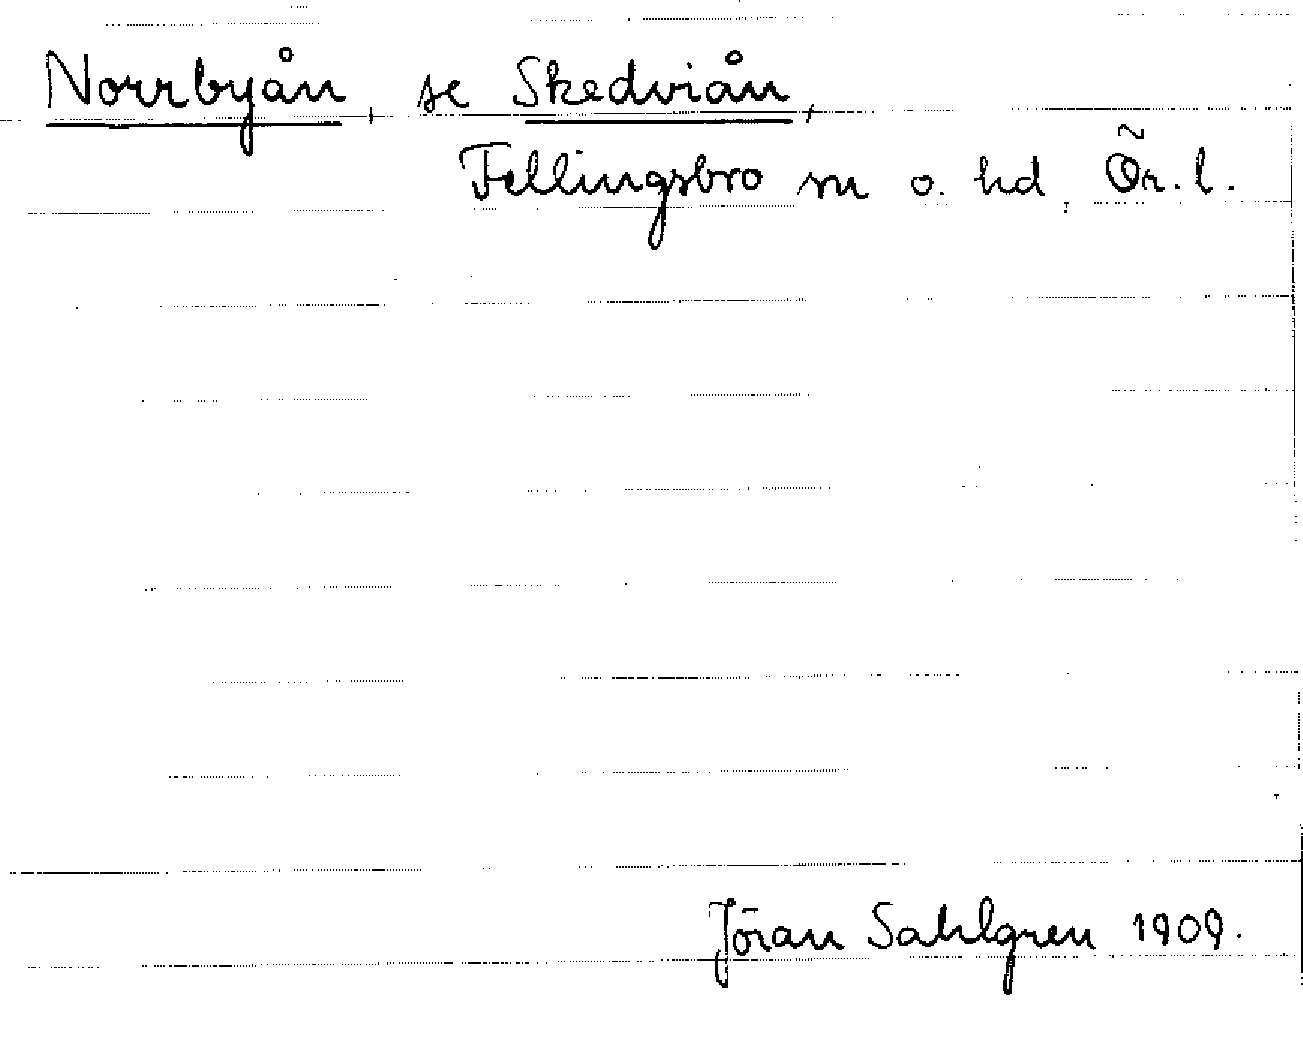 Norrbyån, se Skedviån,
Fellingsbro sn o. hd, Ör. l.
Jöran Sahlgren 1909.